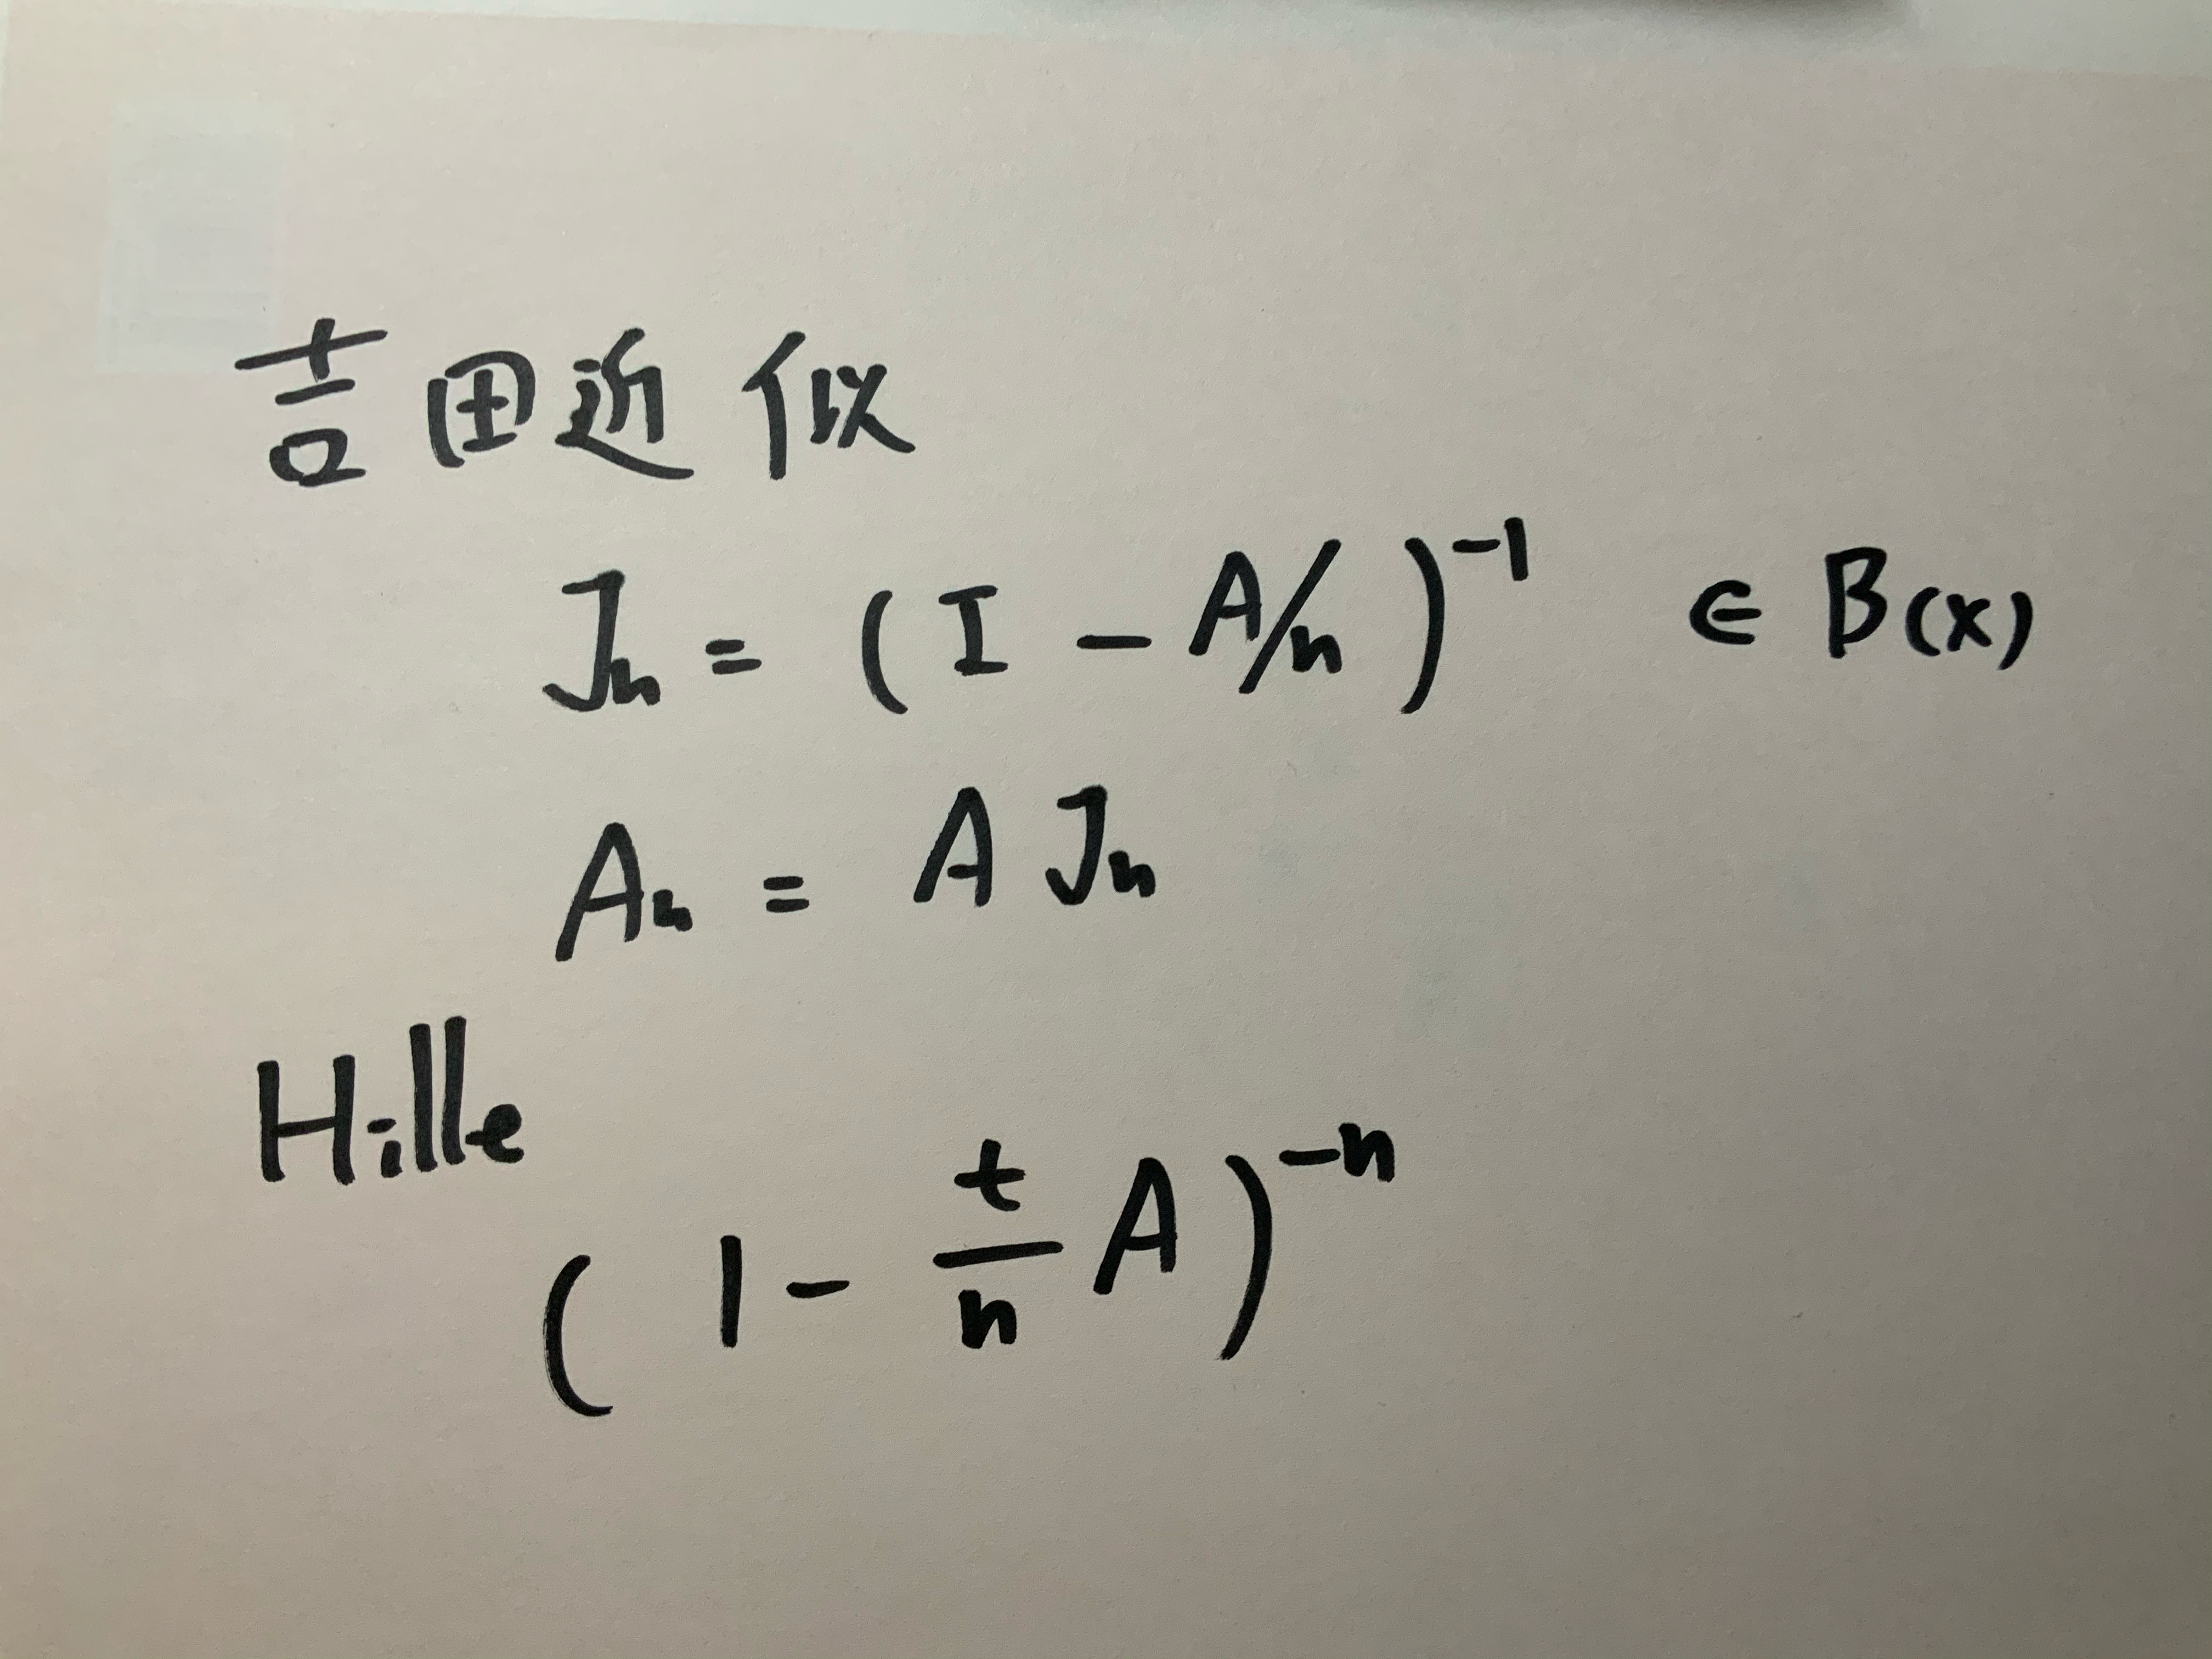 吉田近似
Jn = (I - A/n)^-1 ∈ B(X)
An = A Jn
Hille
(1 - t/n A)^-n